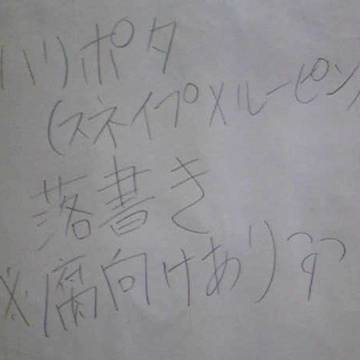 ハリポタ
(スネイプ×ルーピン)
落書き
※腐向けあり